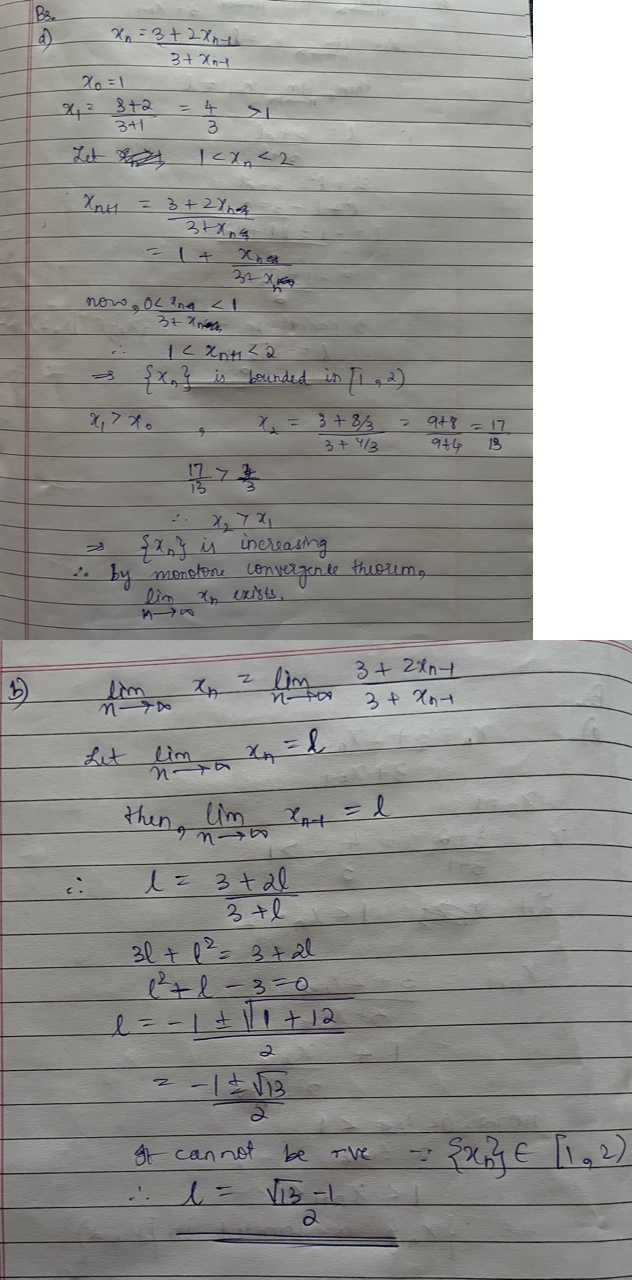 B2.
a) xₙ = (3 + 2xₙ₋₁)/(3 + xₙ₋₁)
x₀ = 1
x₁ = (3+2)/(3+1) = 4/3 > 1
Let 1 < xₙ < 2
xₙ₊₁ = (3 + 2xₙ)/(3 + xₙ)
= 1 + xₙ/(3 + xₙ)
now, 0 < xₙ/(3 + xₙ) < 1
∴ 1 < xₙ₊₁ < 2
⇒ {xₙ} is bounded in [1, 2)
x₁ > x₀ , x₂ = (3 + 8/3)/(3 + 4/3) = (9+8)/(9+4) = 17/13
17/13 > 4/3
∴ x₂ > x₁
⇒ {xₙ} is increasing
∴ by monotone convergence theorem,
lim n→∞ xₙ exists.
b) lim n→∞ xₙ = lim n→∞ (3 + 2xₙ₋₁)/(3 + xₙ₋₁)
Let lim n→∞ xₙ = l
then, lim n→∞ xₙ₋₁ = l
∴ l = (3 + 2l)/(3 + l)
3l + l² = 3 + 2l
l² + l - 3 = 0
l = (-1 ± √(1 + 12))/2
= (-1 ± √13)/2
It cannot be -ve ∵ {xₙ} ∈ [1, 2)
∴ l = (√13 - 1)/2